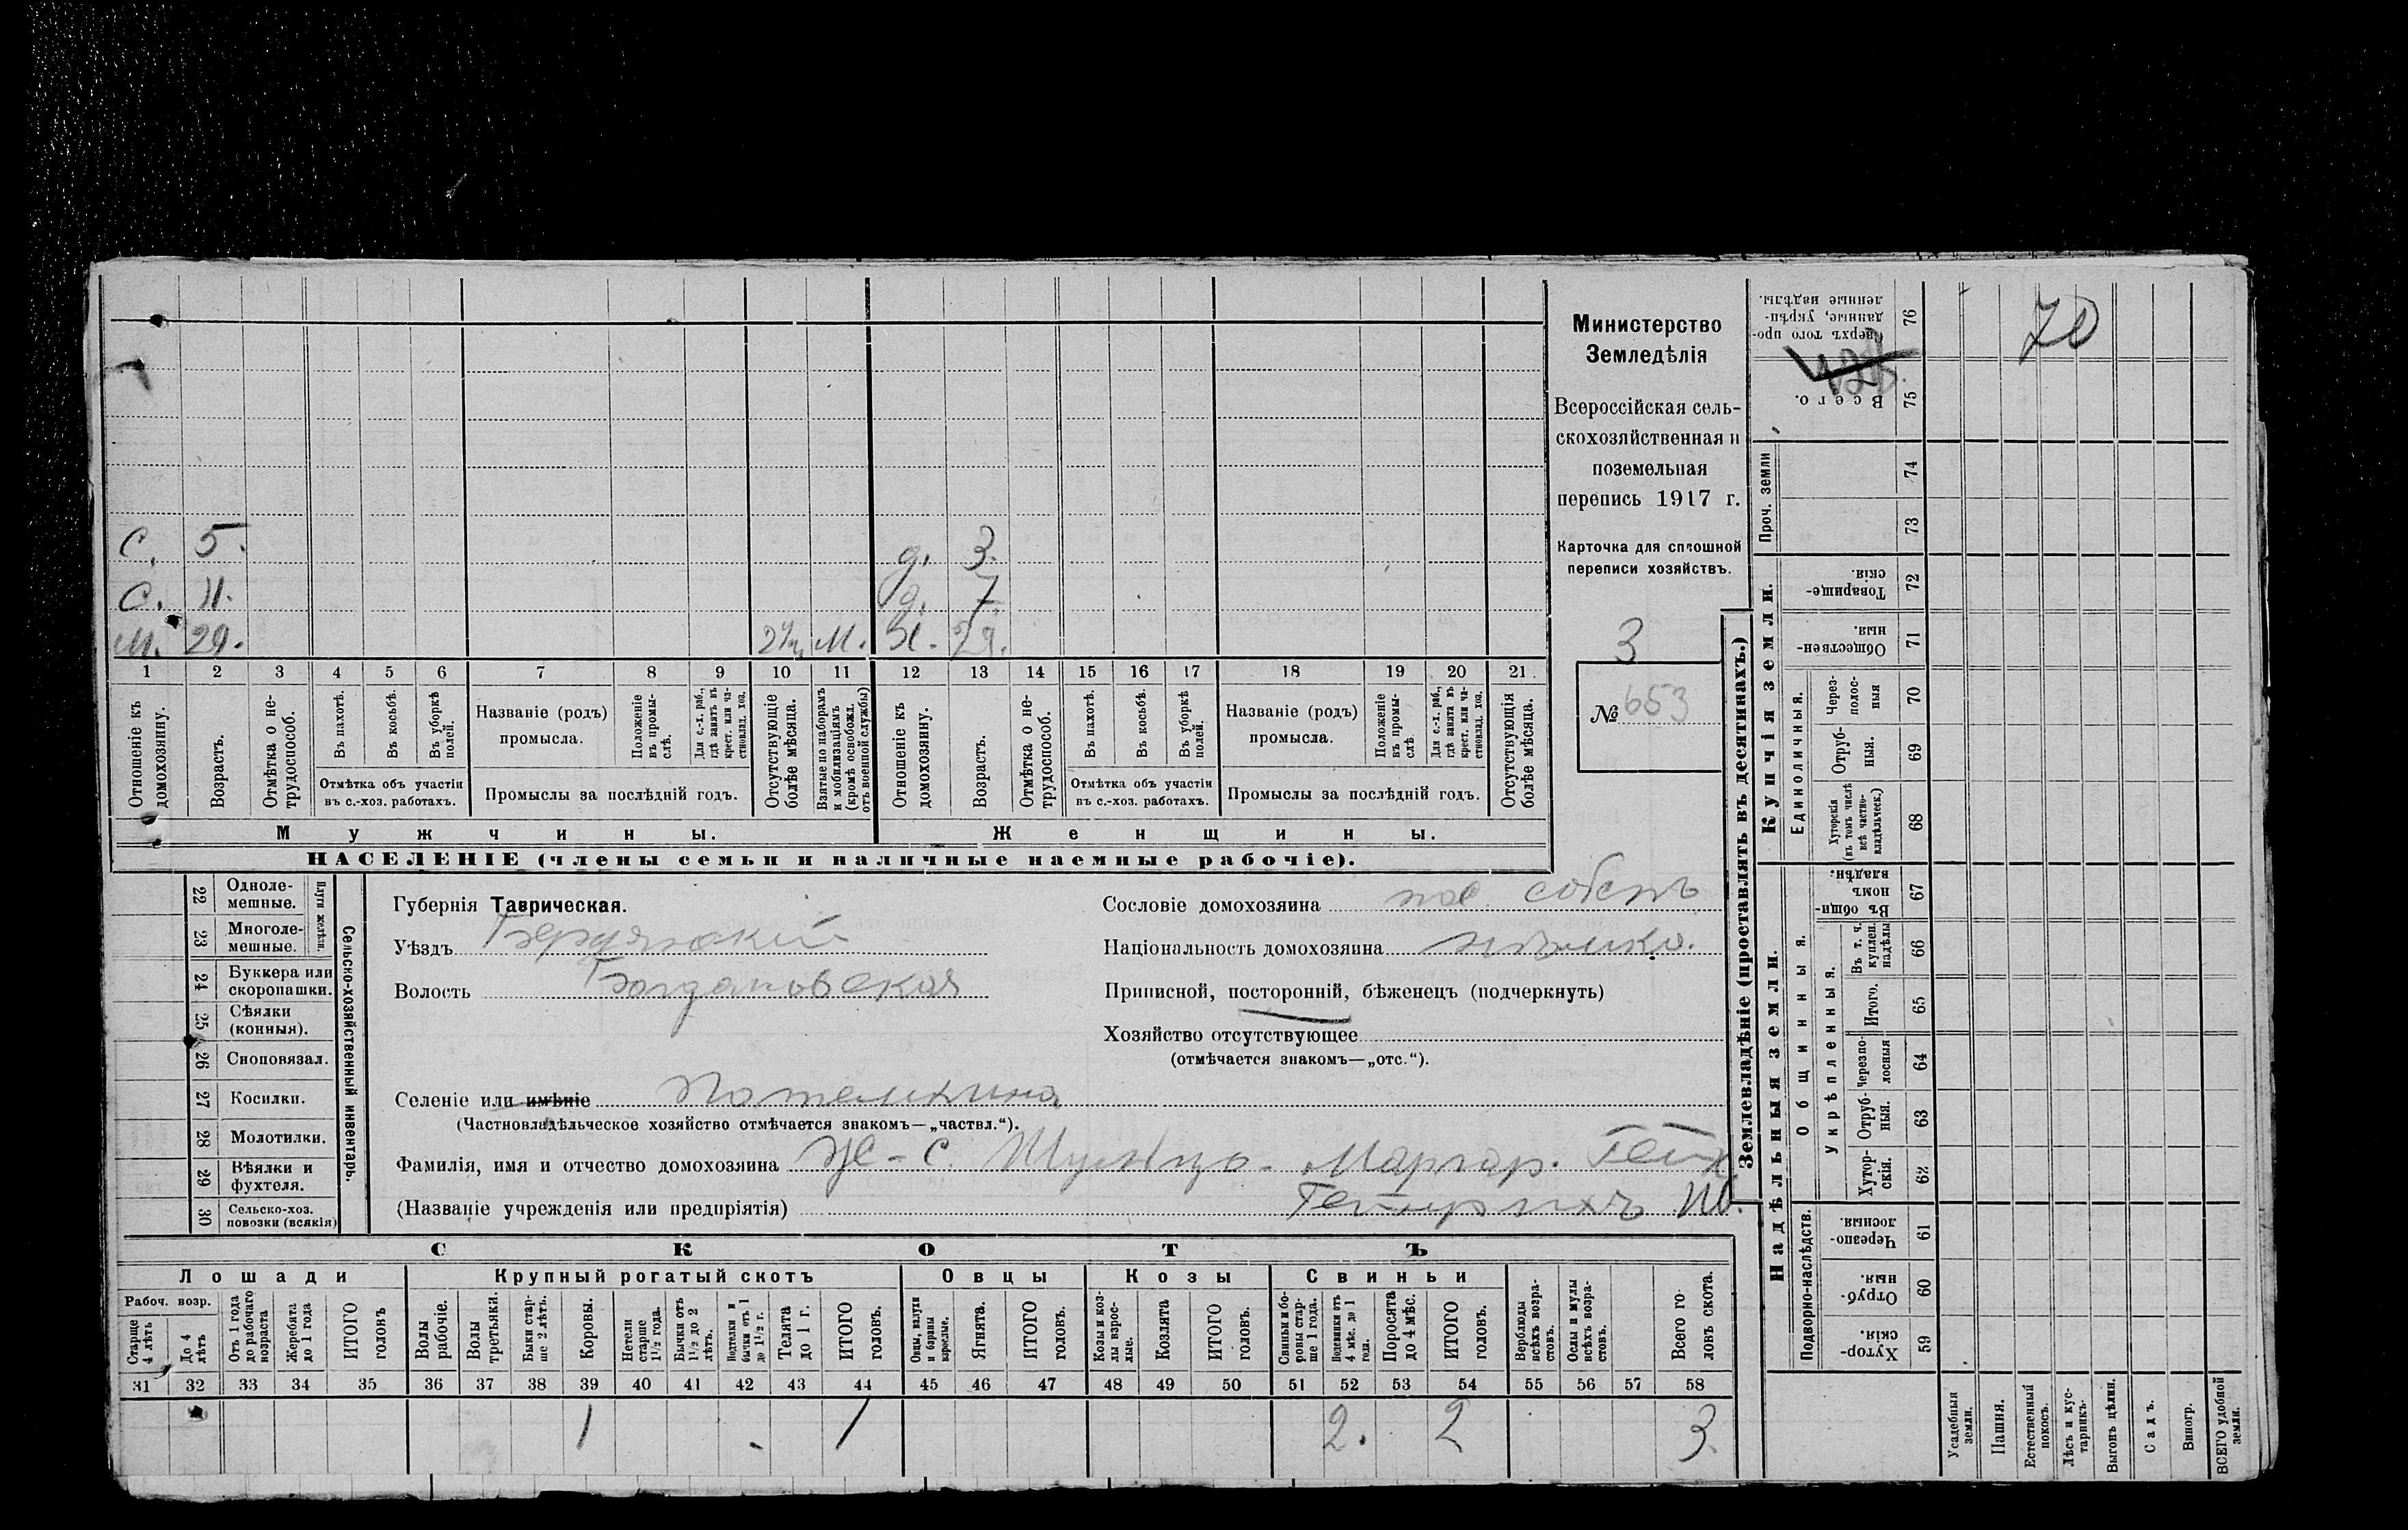 С. 5. д. 3.
С. 11. д. 7.
М. 29. М. Ж. 29.
1 2 3 4 5 6 7 8 9 10 11 12 13 14 15 16 17 18 19 20 21
Отношеніе къ домохозяину.
Возрастъ.
Отмѣтка о не-трудоспособ.
Въ пахотѣ.
Въ косьбѣ.
Въ уборкѣ полей.
Отмѣтка объ участіи
въ с.-хоз. работахъ.
Названіе (родъ)
промысла.
Положеніе въ промы-слѣ.
Для с.-х. раб., гдѣ занятъ въ крест. или ча-стновлад. хоз.
Промыслы за послѣдній годъ.
Отсутствующіе болѣе мѣсяца.
Взятые по наборамъ и мобилизаціямъ (кромѣ освобожд. отъ военной службы)
Отношеніе къ домохозяину.
Возрастъ.
Отмѣтка о не-трудоспособ.
Въ пахотѣ.
Въ косьбѣ.
Въ уборкѣ полей.
Отмѣтка объ участіи
въ с.-хоз. работахъ.
Названіе (родъ)
промысла.
Положеніе въ промы-слѣ.
Для с.-х. раб., гдѣ занята въ крест. или ча-стновлад. хоз.
Промыслы за послѣдній годъ.
Отсутствующія болѣе мѣсяца.
Мужчины.
Женщины.
НАСЕЛЕНІЕ (члены семьи и наличные наемные рабочіе).
Министерство
Земледѣлія
Всероссійская сель-
скохозяйственная и
поземельная
перепись 1917 г.
Карточка для сплошной
переписи хозяйствъ.
3
№ 653
22 Одноле-мешные.
23 Многоле-мешные.
Плуги желѣзн.
24 Буккера или скоропашки.
25 Сѣялки (конныя).
26 Сноповязал.
27 Косилки.
28 Молотилки.
29 Вѣялки и фухтеля.
30 Сельско-хоз. повозки (всякія)
Сельско-хозяйственный инвентарь.
Губернія Таврическая.
Уѣздъ Бердянскій
Волость Богдановская
Селеніе или имѣніе Потемкина
(Частновладѣльческое хозяйство отмѣчается знакомъ—„частвл.“).
Фамилія, имя и отчество домохозяина Ж-с. Шульцъ - Маргар. Гейн
(Названіе учрежденія или предпріятія) Гейнрихъ
Сословіе домохозяина пос. собств
Національность домохозяина нѣмка.
Приписной, посторонній, бѣженецъ (подчеркнуть)
Хозяйство отсутствующее
(отмѣчается знакомъ—„отс.“).
СКОТЪ
Лошади
Крупный рогатый скотъ
Овцы
Козы
Свиньи
Рабоч. возр.
Старше 4 лѣтъ
До 4 лѣтъ
Отъ 1 года до рабочаго возраста
Жеребята до 1 года
ИТОГО головъ
Волы рабочіе.
Волы третьяки.
Быки стар-ше 2 лѣтъ.
Коровы.
Нетели старше 1½ года.
Бычки отъ 1½ до 2 лѣтъ.
Подтелки и бычки отъ 1 до 1½ г.
Телята до 1 г.
ИТОГО головъ.
Овцы, валухи и бараны взрослые.
Ягнята.
ИТОГО головъ.
Козы и коз-лы взрос-лые.
Козлята
ИТОГО головъ.
Свиньи и бо-ровы стар-ше 1 года.
Подсвинки отъ 4 мѣс. до 1 года.
Поросята до 4 мѣс.
ИТОГО головъ.
Верблюды всѣхъ возра-стовъ.
Ослы и мулы всѣхъ возра-стовъ.
Всего го-ловъ скота.
31 32 33 34 35 36 37 38 39 40 41 42 43 44 45 46 47 48 49 50 51 52 53 54 55 56 57 58
1 1 2. 2 3.
Землевладѣніе (проставлять въ десятинахъ.)
Надѣльныя земли.
Купчія земли.
Проч. земли
Подворно-наслѣдств.
Общинныя.
Укрѣпленныя.
Единоличныя.
Сверхъ того про-данные, укрѣп-ленные надѣлы. 76
70
Всего. 75
74
73
Товарище-скія. 72
Обществен-ныя. 71
Через-полос-ныя 70
Отруб-ныя. 69
Хуторскія (въ томъ числѣ всѣ частно-владѣльческ.) 68
Въ общин-номъ владѣн. 67
Въ т. ч. куплен. надѣлы 66
Итого. 65
Черезпо-лосныя 64
Отруб-ныя. 63
Хутор-скія. 62
Черезпо-лосныя. 61
Отруб-ныя. 60
Хутор-скія. 59
Усадебныя земли.
Пашня.
Естественный покосъ.
Лѣсъ и кус-тарникъ.
Выгонъ цѣлин.
Садъ.
Виногр.
ВСЕГО удобной земли.